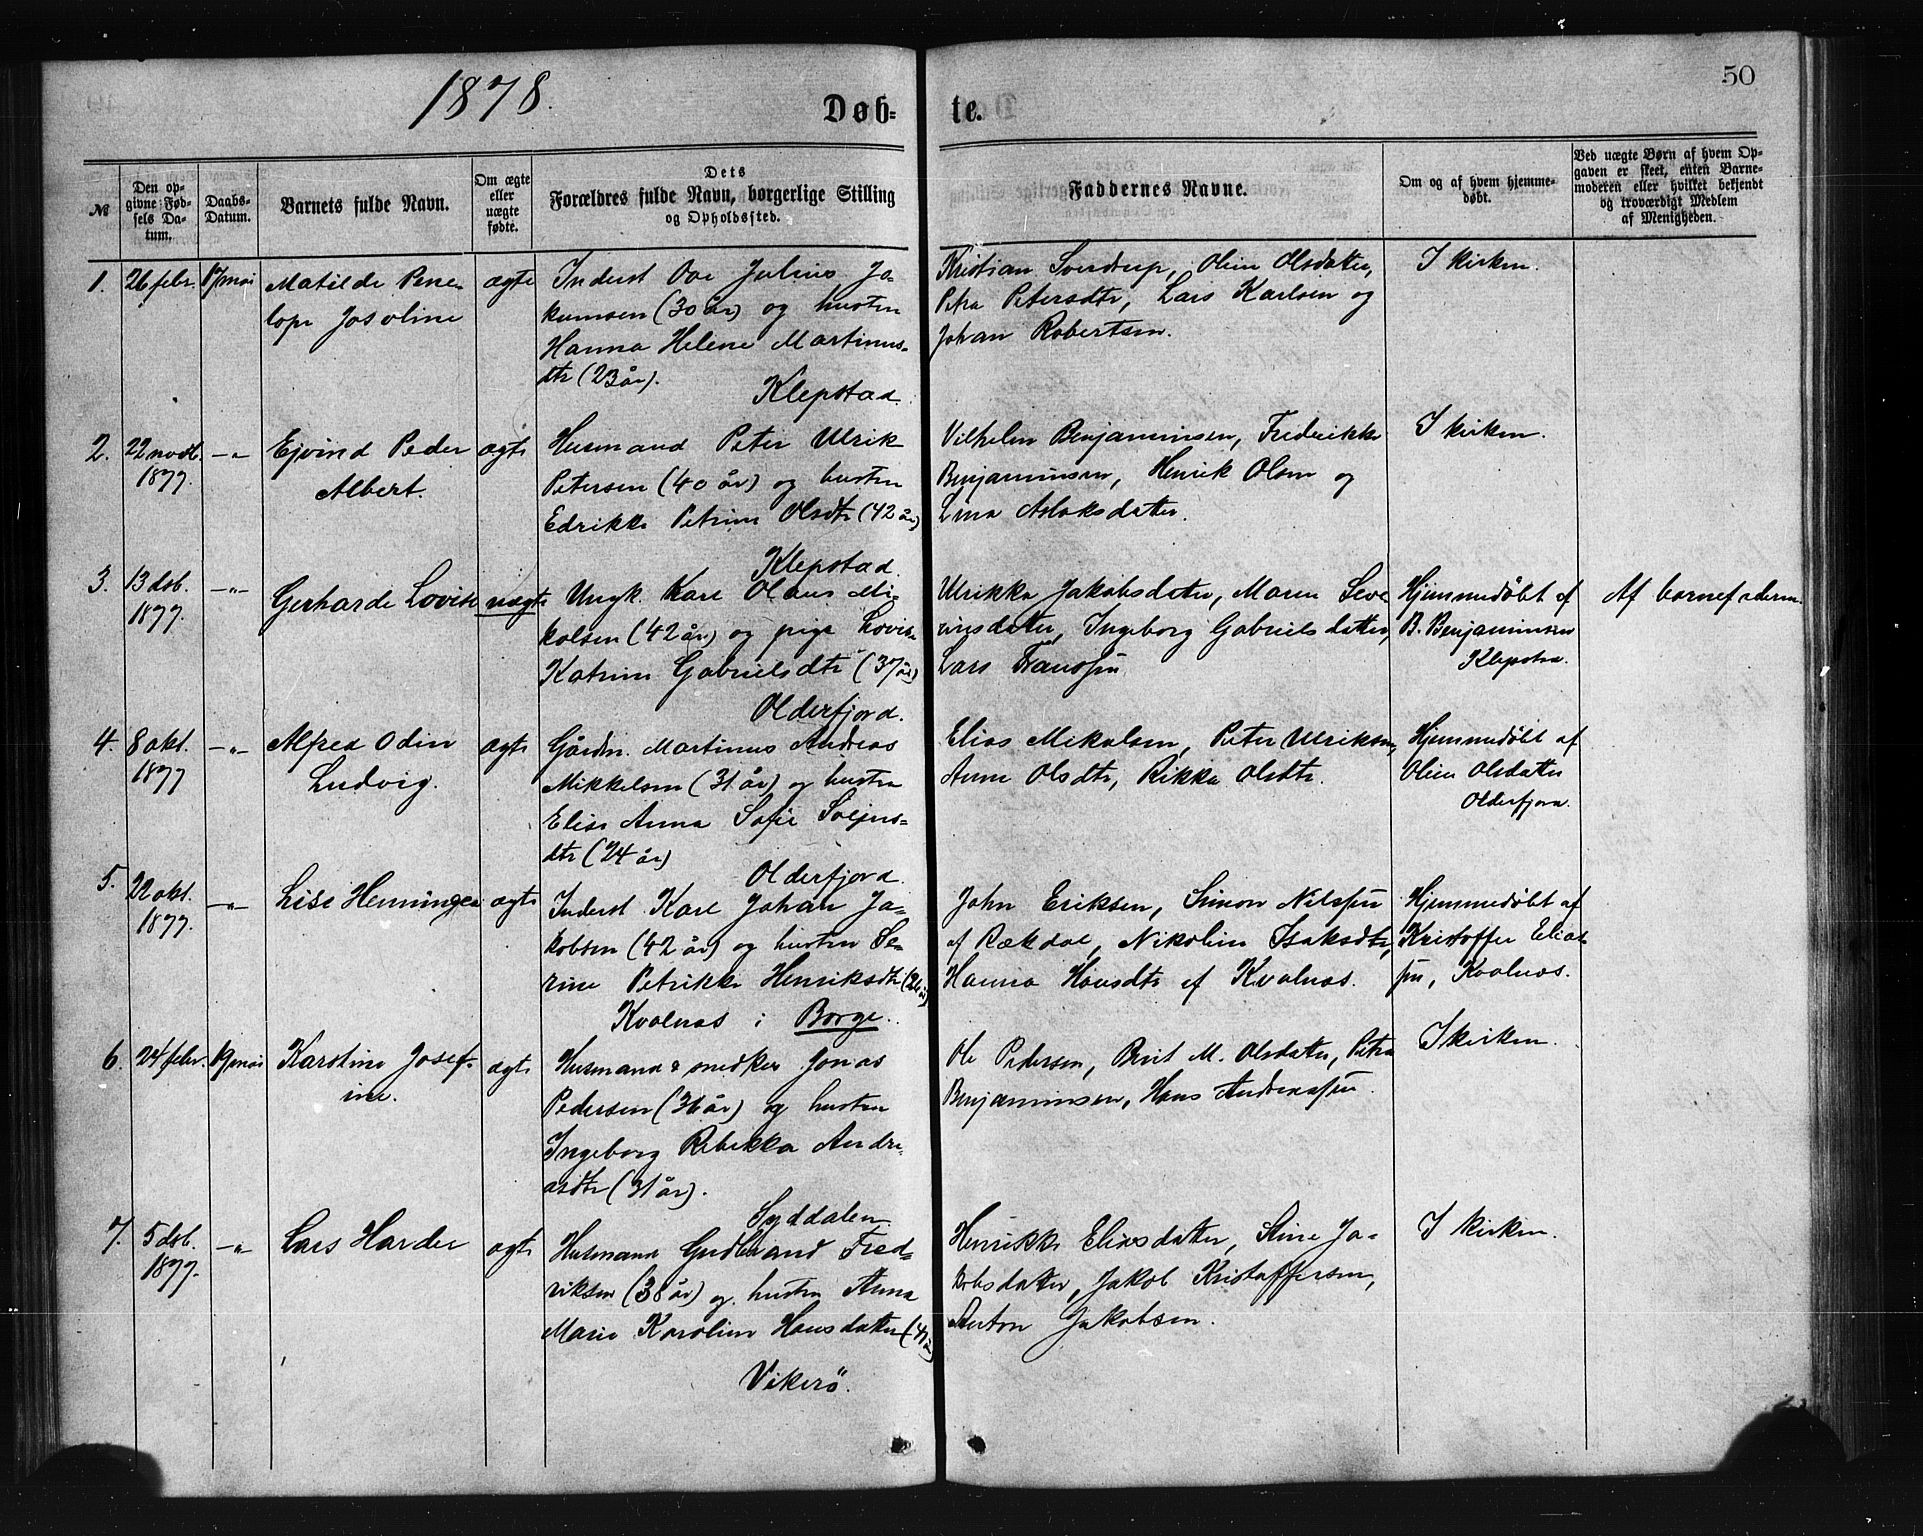 1878.
Døb-
te.
50
№
Den op-
givne Fød-
sels Da-
tum.
Daabs-
Datum.
Barnets fulde Navn.
Om ægte
eller
uægte
fødte.
Dets
Forældres fulde Navn, borgerlige Stilling
og Opholdssted.
Faddernes Navne.
Om og af hvem hjemme-
døbt.
Ved uægte Børn af hvem Op-
gaven er skeet, enten Barne-
moderen eller hvilket bekjendt
og troværdigt Medlem
af Menigheden.
1. 26 febr. 17 mai
Matilde Pene-
lope Josoline
ægte
Inderst Ove Julius Ja-
kumsen (30 år) og hustru
Hanna Helene Martinus-
dtr (23 år).
Klepstad.
Kristian Sverdrup, Oline Olsdatter,
Petra Petersdtr, Lars Karlsen og
Johan Robertsen.
I kirken.
2. 22 novb.
1877.
-"-
Ejvind Peder
Albert.
ægte
Husmand Peter Ulrik
Petersen (40 år) og hustru
Edrikke Petrine Olsdtr (42 år)
Klepstad.
Vilhelm Benjaminsen, Fredrikke
Benjaminsen, Henrik Olsen og
Lina Aslaksdatter.
I kirken.
3. 13 dsb.
1877.
-"-
Gerharde Lovise
uægte
Ungk. Karl Olaus Mi-
kalsen (42 år) og pige Lovise
Katrine Gabrielsdtr (37 år)
Olderfjord.
Ulrikke Jakobsdatter, Maren Seve-
rinsdatter, Ingeborg Gabrielsdatter,
Lars Franssen
Hjemmedøbt af
B. Benjaminsen
Klepstad.
Af barnefaderen.
4. 8 okt.
1877
-"-
Alfred Odin
Ludvig.
ægte
Gårdm. Martinus Andreas
Mikkelsen (31 år) og hustru
Elise Anna Sofie
dtr (24 år)
Olderfjord.
Elias Mikalsen, Peter Ulriksen,
Anne Olsdtr, Rikka Olsdtr.
Hjemmedøbt af
Oline Olsdatter
Olderfjord.
5. 22 okt.
1877.
-"-
Lise Henningea
ægte
Inderst Karl Johan Ja-
kobsen (42 år) og hustru Se-
rine Petrikke Henriksdtr (26 år)
Kvalnæs i Borge.
John Eriksen, Simon Nilssen
af Rækdal, Nikoline Isaksdtr,
Hanna Hansdtr af Kvalnæs.
Hjemmedøbt af
Kristoffer Elias-
sen, Kvalnæs.
6. 24 febr. 19 mai
Karoline Josef-
ine.
ægte
Husmand & snedker Jonas
Pedersen (36 år) og hustru
Ingeborg Rebekka Andre-
asdtr (31 år).
Syddalen
Ole Pedersen, Brit M. Olsdatter, Petra
Benjaminsen, Hans Andreassen.
I kirken.
7. 5 dsb.
1877.
-"-
Lars Harder
ægte
Husmand Gudbrand Fred-
riksen (38 år) og hustru Anna
Marie Karoline Hansdatter (41 år)
Vikerö.
Henrikke Eliasdatter, Stine Ja-
kobsdatter, Jakob Kristoffersen,
Anton Jakobsen.
I kirken.